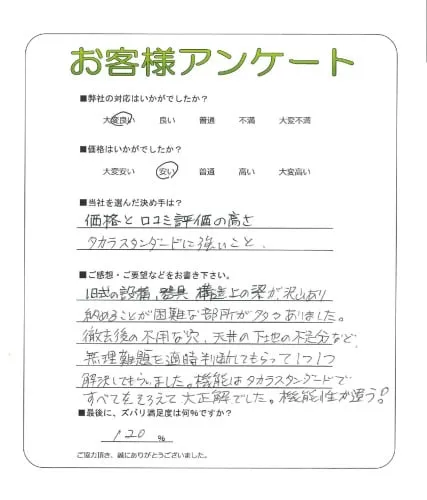 お客様アンケート
■弊社の対応はいかがでしたか？
大変良い　良い　普通　不満　大変不満
■価格はいかがでしたか？
大変安い　安い　普通　高い　大変高い
■当社を選んだ決め手は？
価格と口コミ評価の高さ
タカラスタンダードに強いこと、
■ご感想・ご要望などをお書き下さい。
旧式の設備、器具 構造上の梁が、沢山あり
納めることが困難な部所が多々ありました。
撤去後の不用な穴、天井の下地の不足分など、
無理難題を適時判断してもらって1つ1つ
解決してもらいました。機能はタカラスタンダードで
すべてをそろえて大正解でした。機能性が違う！
■最後に、ズバリ満足度は何％ですか？
120 ％
ご協力頂き、誠にありがとうございました。